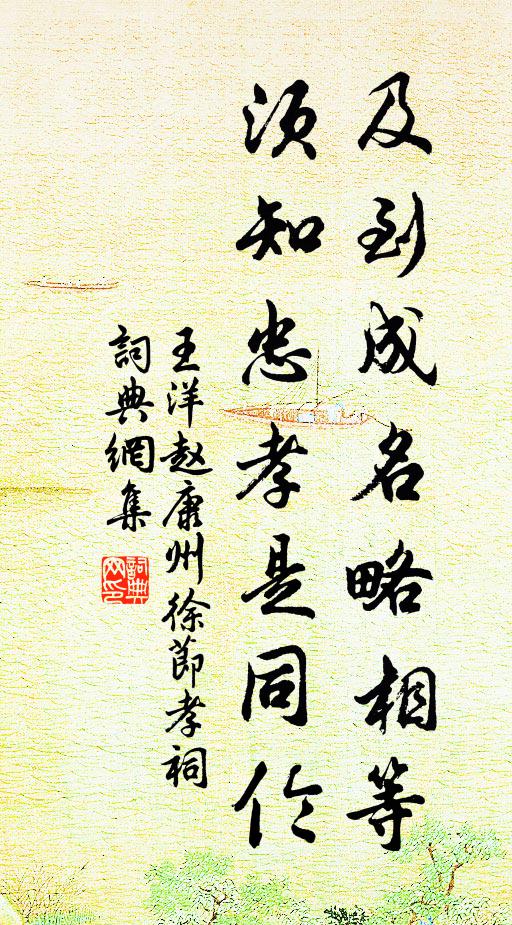 及到成名略相等
须知忠孝是同伦
王洋赵康州徐節孝祠
詞典網集
詞典网印